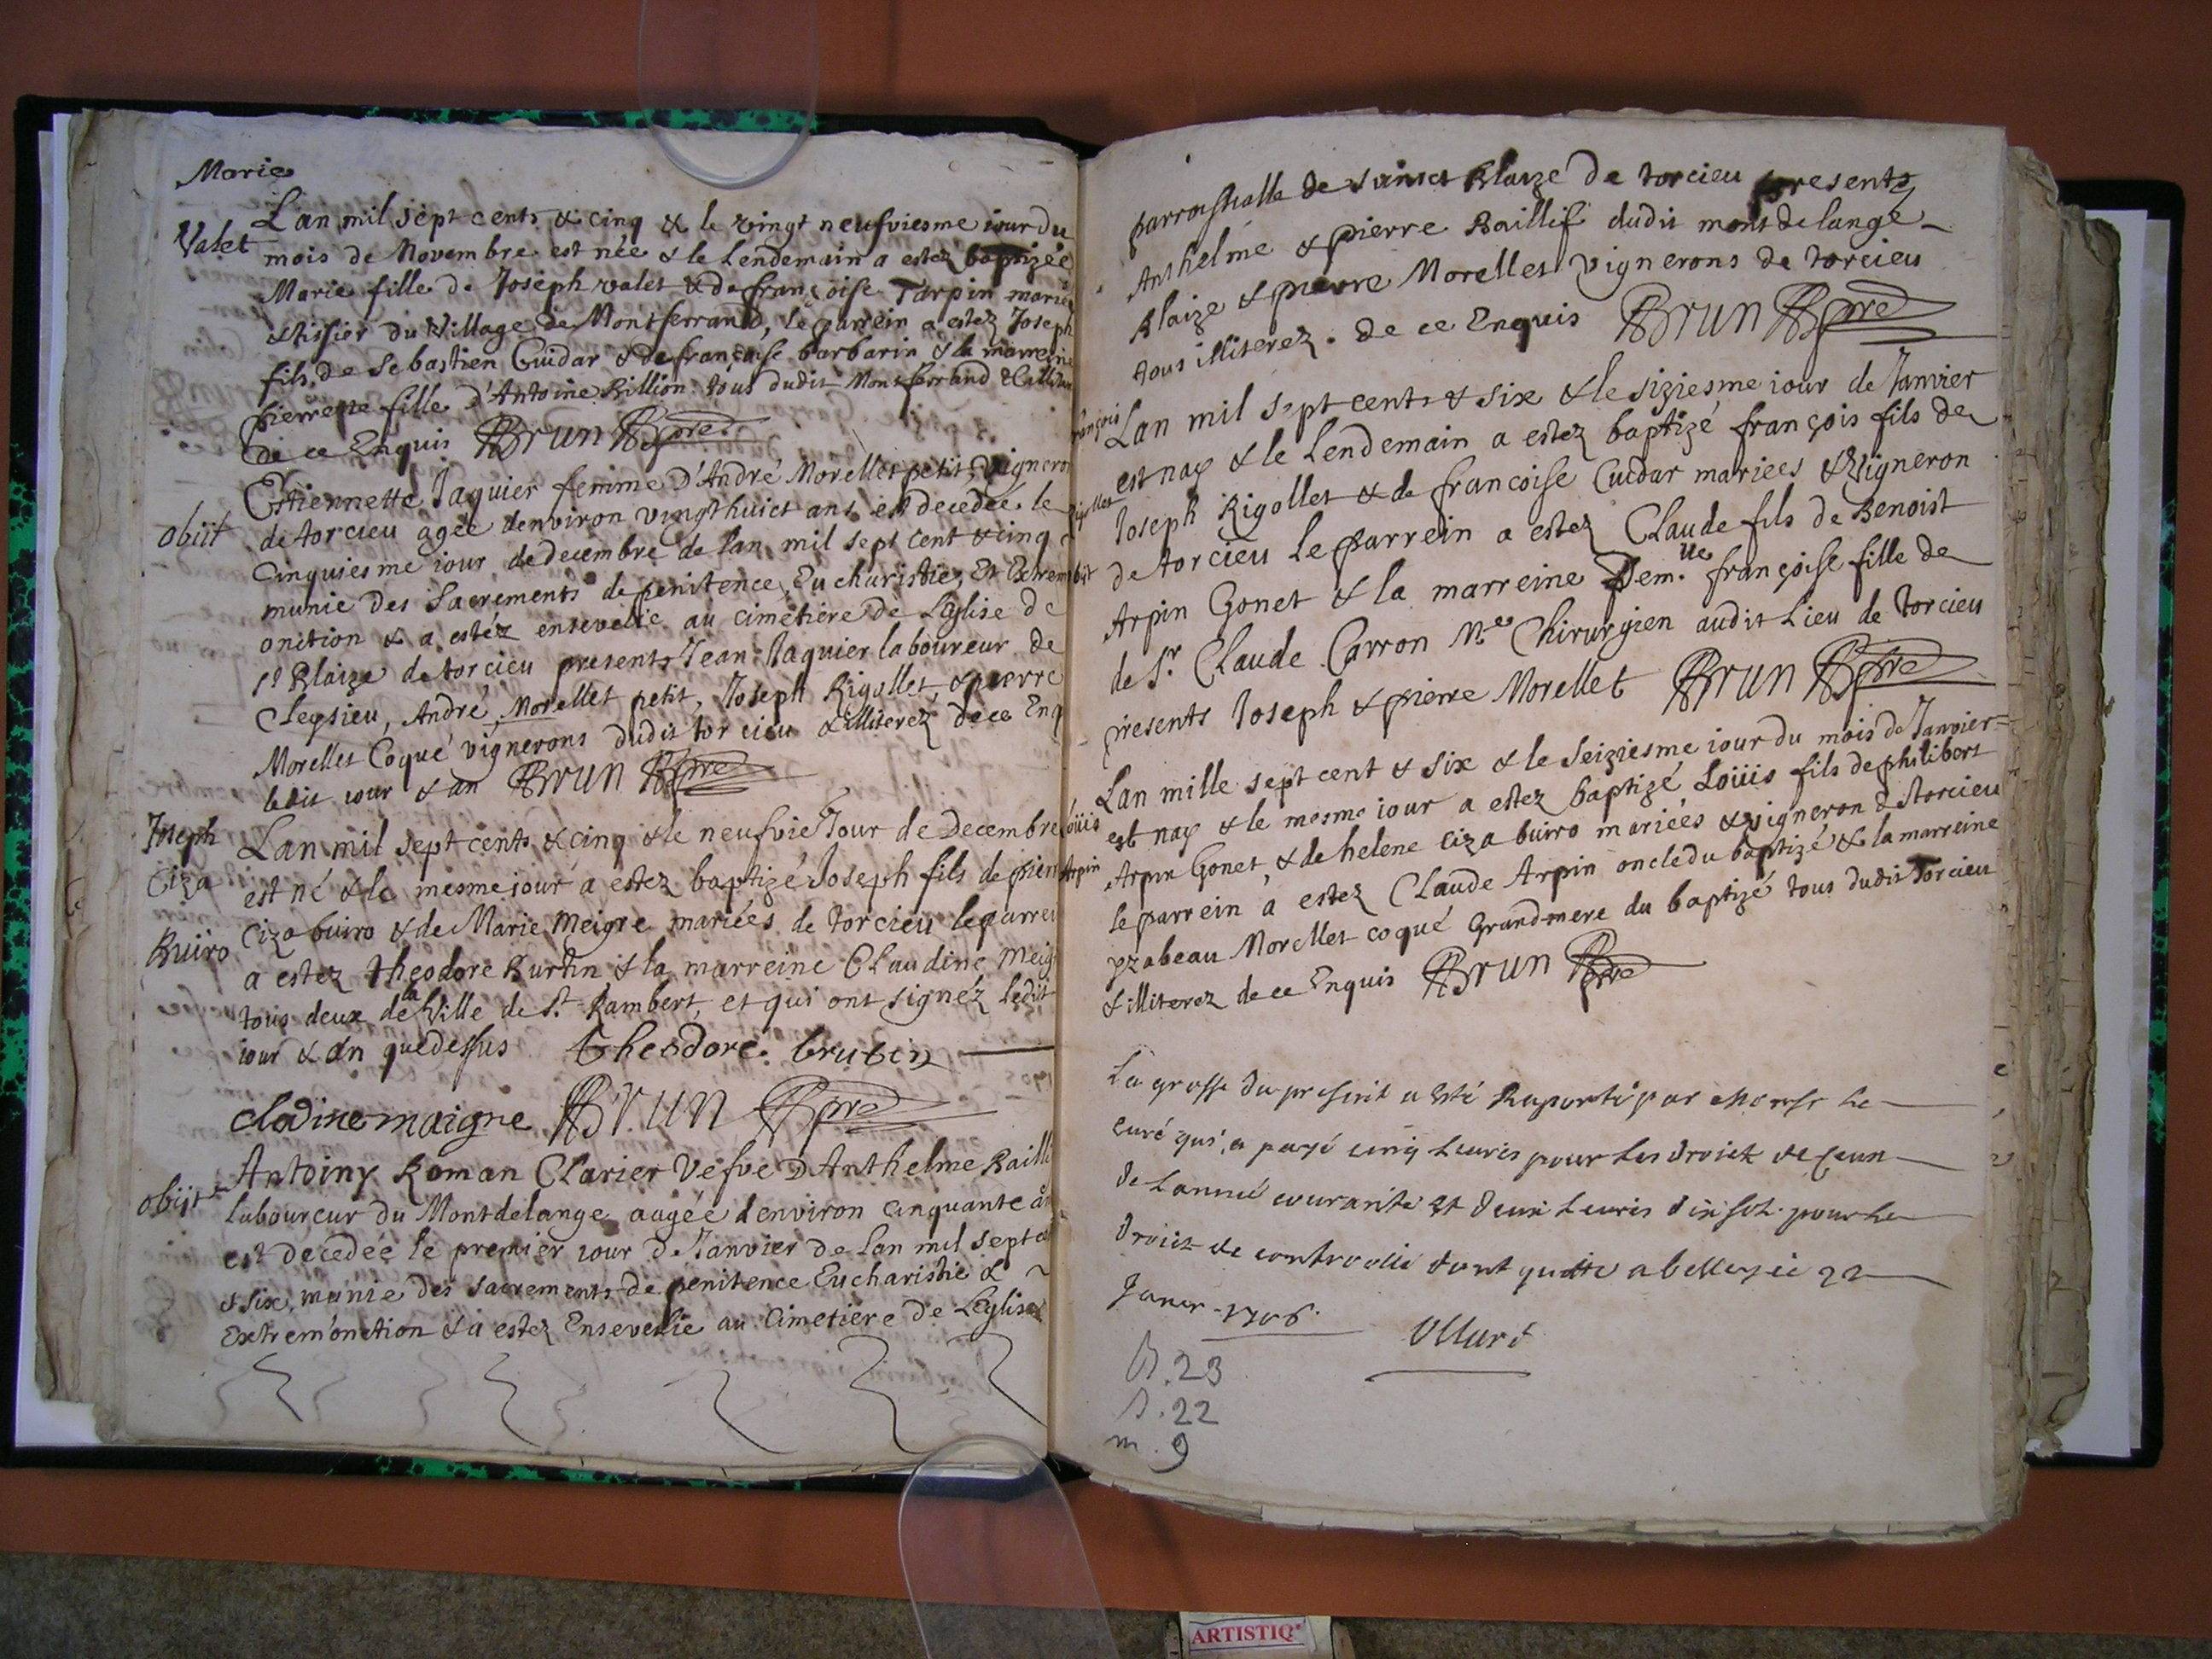 Marie
Valet
L'an mil sept cents & cinq & le vingt neufviesme iour du
mois de Novembre est née & le Lendemain a estez baptizée
Marie fille de Joseph valet & de françoise Tarpin mariés
& tissier du Village de Montferrand, le parrein a estez Joseph
fils de Sebastien Guidar & de françoise barbarin & la marreine
pierrette fille d'Antoine Billion tous dudit Montferrand & illiterez
de ce Enquis Brun pre
Obiit
Estiennette Jaquier femme d'André Morellet petit, vigneron
de torcieu agée denviron vingthuict ans est decedée le
Cinquiesme iour de decembre de lan mil sept cent & cinq
munie des Sacrements de penitence, Eucharistie, Et Extrem
onction & a estéz ensevelie au cimetiere de Leglise de
st Blaize de torcieu presents Jean Jaquier laboureur de
Cleysieu, André Morellet petit, Joseph Rigollet, & pierre
Morellet Coqué vignerons dudit torcieu & illiterez de ce Enq
ledit iour & an Brun pre
Joseph
Ciza
Buiro
Lan mil sept cents & cinq & le neufvie Jour de Decembre
est né & le mesme iour a estez baptizé Joseph fils de pierr
Ciza buiro & de Marie Meigre mariées de torcieu le parrei
a estez theodore Burtin & la marreine Claudine Meig
tous deux de la Ville de St Rambert, et qui ont signéz ledit
iour & an que dessus theodore brutin
cladine maigre Brun pre
obijt
Antoiny Roman Clarier Vefve D'Anthelme Bailli
Laboureur du Montdelange aagée denviron cinquante an
est decedée le premier iour de Janvier de Lan mil sept ce
& six, munie des sacrements de penitence Eucharistie &
Extremonction & a estez Ensevelie au Cimetiere de Leglise
parroissialle de sainct Blaize de torcieu presents
Anthelme & pierre Baillif dudit montdelange
Blaize & pierre Morellet vignerons de torcieu
tous illiterez. de ce Enquis Brun pre
françois
Rigollet
Lan mil sept cents & six & le siziesme iour de Janvier
est nay & le Lendemain a estez baptizé françois fils de
Joseph Rigollet & de francoise Cuidar mariees & Vigneron
de torcieu le parrein a estez Claude fils de Benoist
Arpin Gonet & la marreine Dem.lle françoise fille de
de Sr Claude Carron Me Chirurgien audit Lieu de torcieu
presents Joseph & pierre Morellet Brun pre
Loüis
Arpin
Lan mille sept cent & six & le seiziesme iour du mois de Janvier
est nay & le mesme iour a estez baptizé Loüis fils de philibert
Arpin Gonet, & de helene Ciza buiro mariées & vigneron de torcieu
le parrein a estez Claude Arpin oncle du baptizé & la marreine
yzabeau Morellet coqué Grandmere du baptizé tous dudit torcieu
& illiterez de ce Enquis Brun pre
La grosse du present a esté Raporté par Monsr Le
curé qui a payé cinq Liures pour Les droictz de
de Lannée courante Et deux Liures dix sols pour Le
Droict de controolle dont quitte a belley ce 22
Janvr 1706.
B. 23
S. 22
m. 9